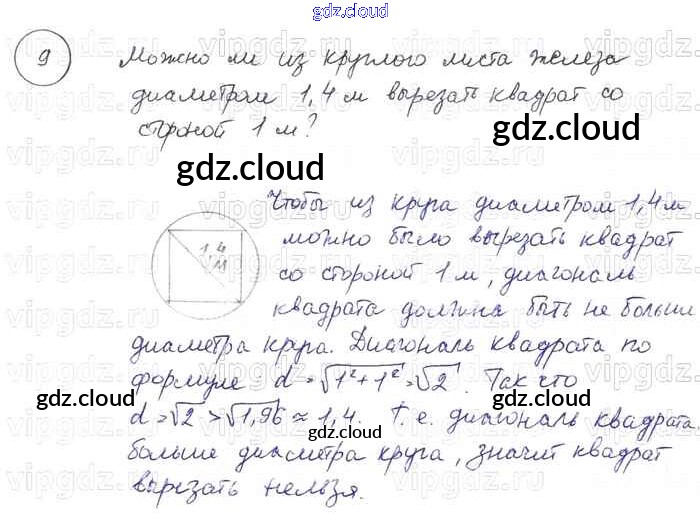 gdz.cloud
9 Можно ли из круглого листа железа
диаметром 1,4 м вырезать квадрат со
стороной 1 м?
gdz.cloud
gdz.cloud
Чтобы из круга диаметром 1,4 м
можно было вырезать квадрат
со стороной 1 м, диагональ
квадрата должна быть не больши
1,4
м
диаметра круга. Диагональ квадрата по
формуле d = √1²+1² = √2. Так что
gdz.cloud
gdz.cloud
d = √2 > √1,96 ≈ 1,4. Т.е. диагональ квадрата
gdz.cloud
больше диаметра круга, значит квадрат
вырезать нельзя.
gdz.cloud